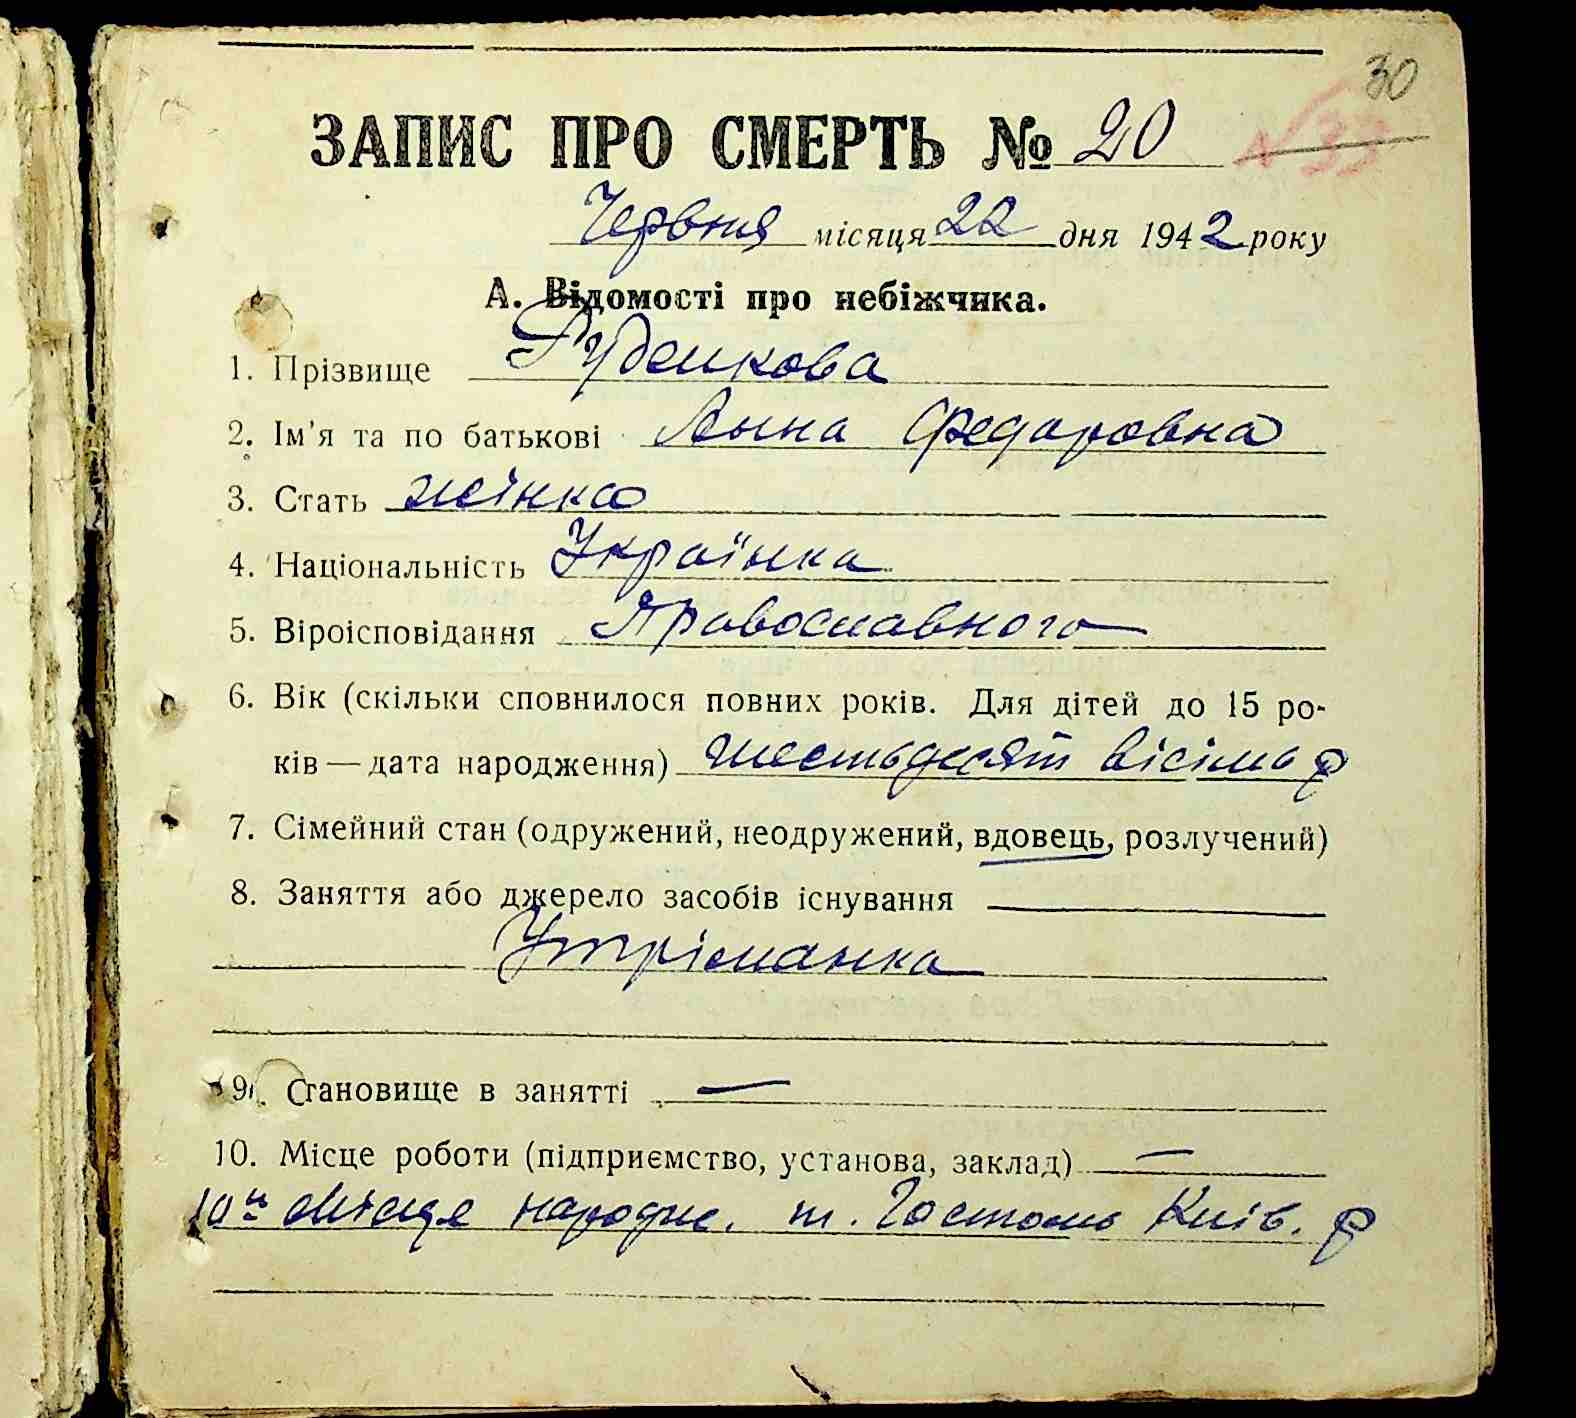 30
№ 33
ЗАПИС ПРО СМЕРТЬ № 20
Червня місяця 22 дня 1942 року
А. Відомості про небіжчика.
1. Прізвище Руденкова
2. Ім'я та по батькові Анна Федоровна
3. Стать жінка
4. Національність Українка
5. Віроісповідання Православного
6. Вік (скільки сповнилося повних років. Для дітей до 15 ро-
ків — дата народження) шестьдесят вісімь р
7. Сімейний стан (одружений, неодружений, вдовець, розлучений)
8. Заняття або джерело засобів існування
Утріманка
9. Становище в занятті —
10. Місце роботи (підприємство, установа, заклад) —
Місце народже. м. Гостомь Київ. р